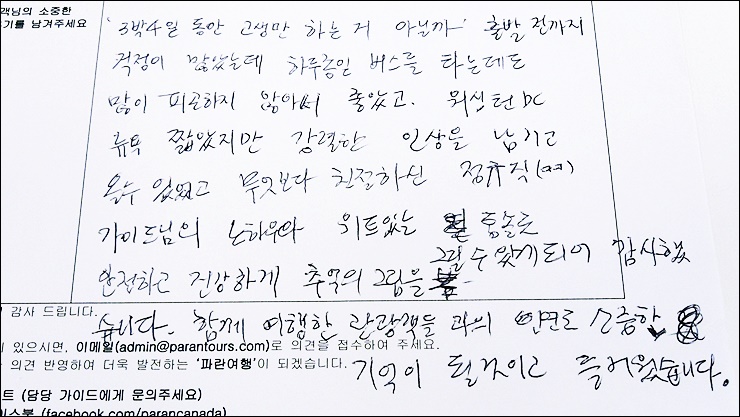 객님의 소중한
기를 남겨주세요
'3박4일 동안 고생만 하는 거 아닐까' 출발 전까지
걱정이 많았는데 하루종일 버스를 타는데도
많이 피곤하지 않아서 좋았고. 워싱턴 DC
뉴욕 짧았지만 강렬한 인상을 남기고
올수 있었고 무엇보다 친절하신
가이드님의 노하우와 위트있는
안전하고 건강하게 추억의 그림을 그릴 수 있게 되어 감사했
습니다. 함께 여행한 관광객들과의 인연도 소중한
기억이 될것이고 즐거웠습니다.
감사 드립니다.
있으시면, 이메일(admin@parantours.com)로 의견을 접수하여 주세요.
의견 반영하여 더욱 발전하는 '파란여행'이 되겠습니다.
트 (담당 가이드에게 문의주세요)
이스북 (facebook.com/parancanada)